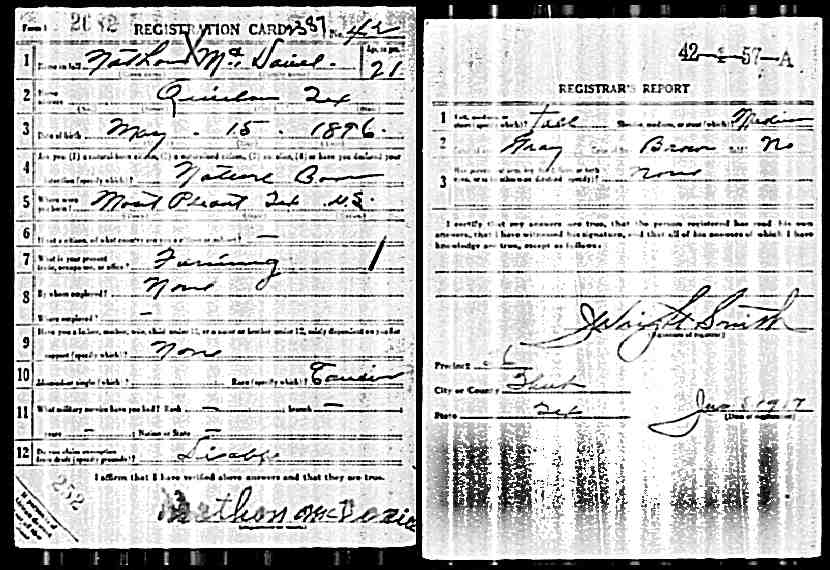 Form 1 2082 REGISTRATION CARD 2387 No. 42
1 Name in full Nathon Mc Daniel. Age, in yrs. 21
2 Home Quinlan Tex
3 Date of birth May 15 1896
4 Are you (1) a natural-born citizen, (2) a naturalized citizen, (3) an alien, (4) or have you declared your
intention (specify which)? Nature Born
5 Where were you born? Mont Pleant Tex U.S.
6 If not a citizen, of what country are you a citizen or subject? —
7 What is your present trade, occupation, or office? Farming 1
8 By whom employed? None
Where employed? —
9 Have you a father, mother, wife, child under 12, or a sister or brother under 12, solely dependent on you for
support (specify which)? None
10 Married or single (which)? Race (specify which)?
11 What military service have you had? Rank — branch —
years — Nation or State —
12 Do you claim exemption from draft (specify grounds)?
I affirm that I have verified above answers and that they are true.
252
Nathon McDaniel
42-1-57-A
REGISTRAR'S REPORT
1 Tall, medium, or short (specify which)? tall Slender, medium, or stout (which)? Medium
2 Color of eyes Gray Color of hair Brown No
3 None
I certify that my answers are true, that the person registered has read his own
answers, that I have witnessed his signature, and that all of his answers of which I have
knowledge are true, except as follows:
J Wright Smith
(Signature of registrar)
Precinct 6
City or County Hunt
State Tex
Jun 5 1917
(Date of registration)